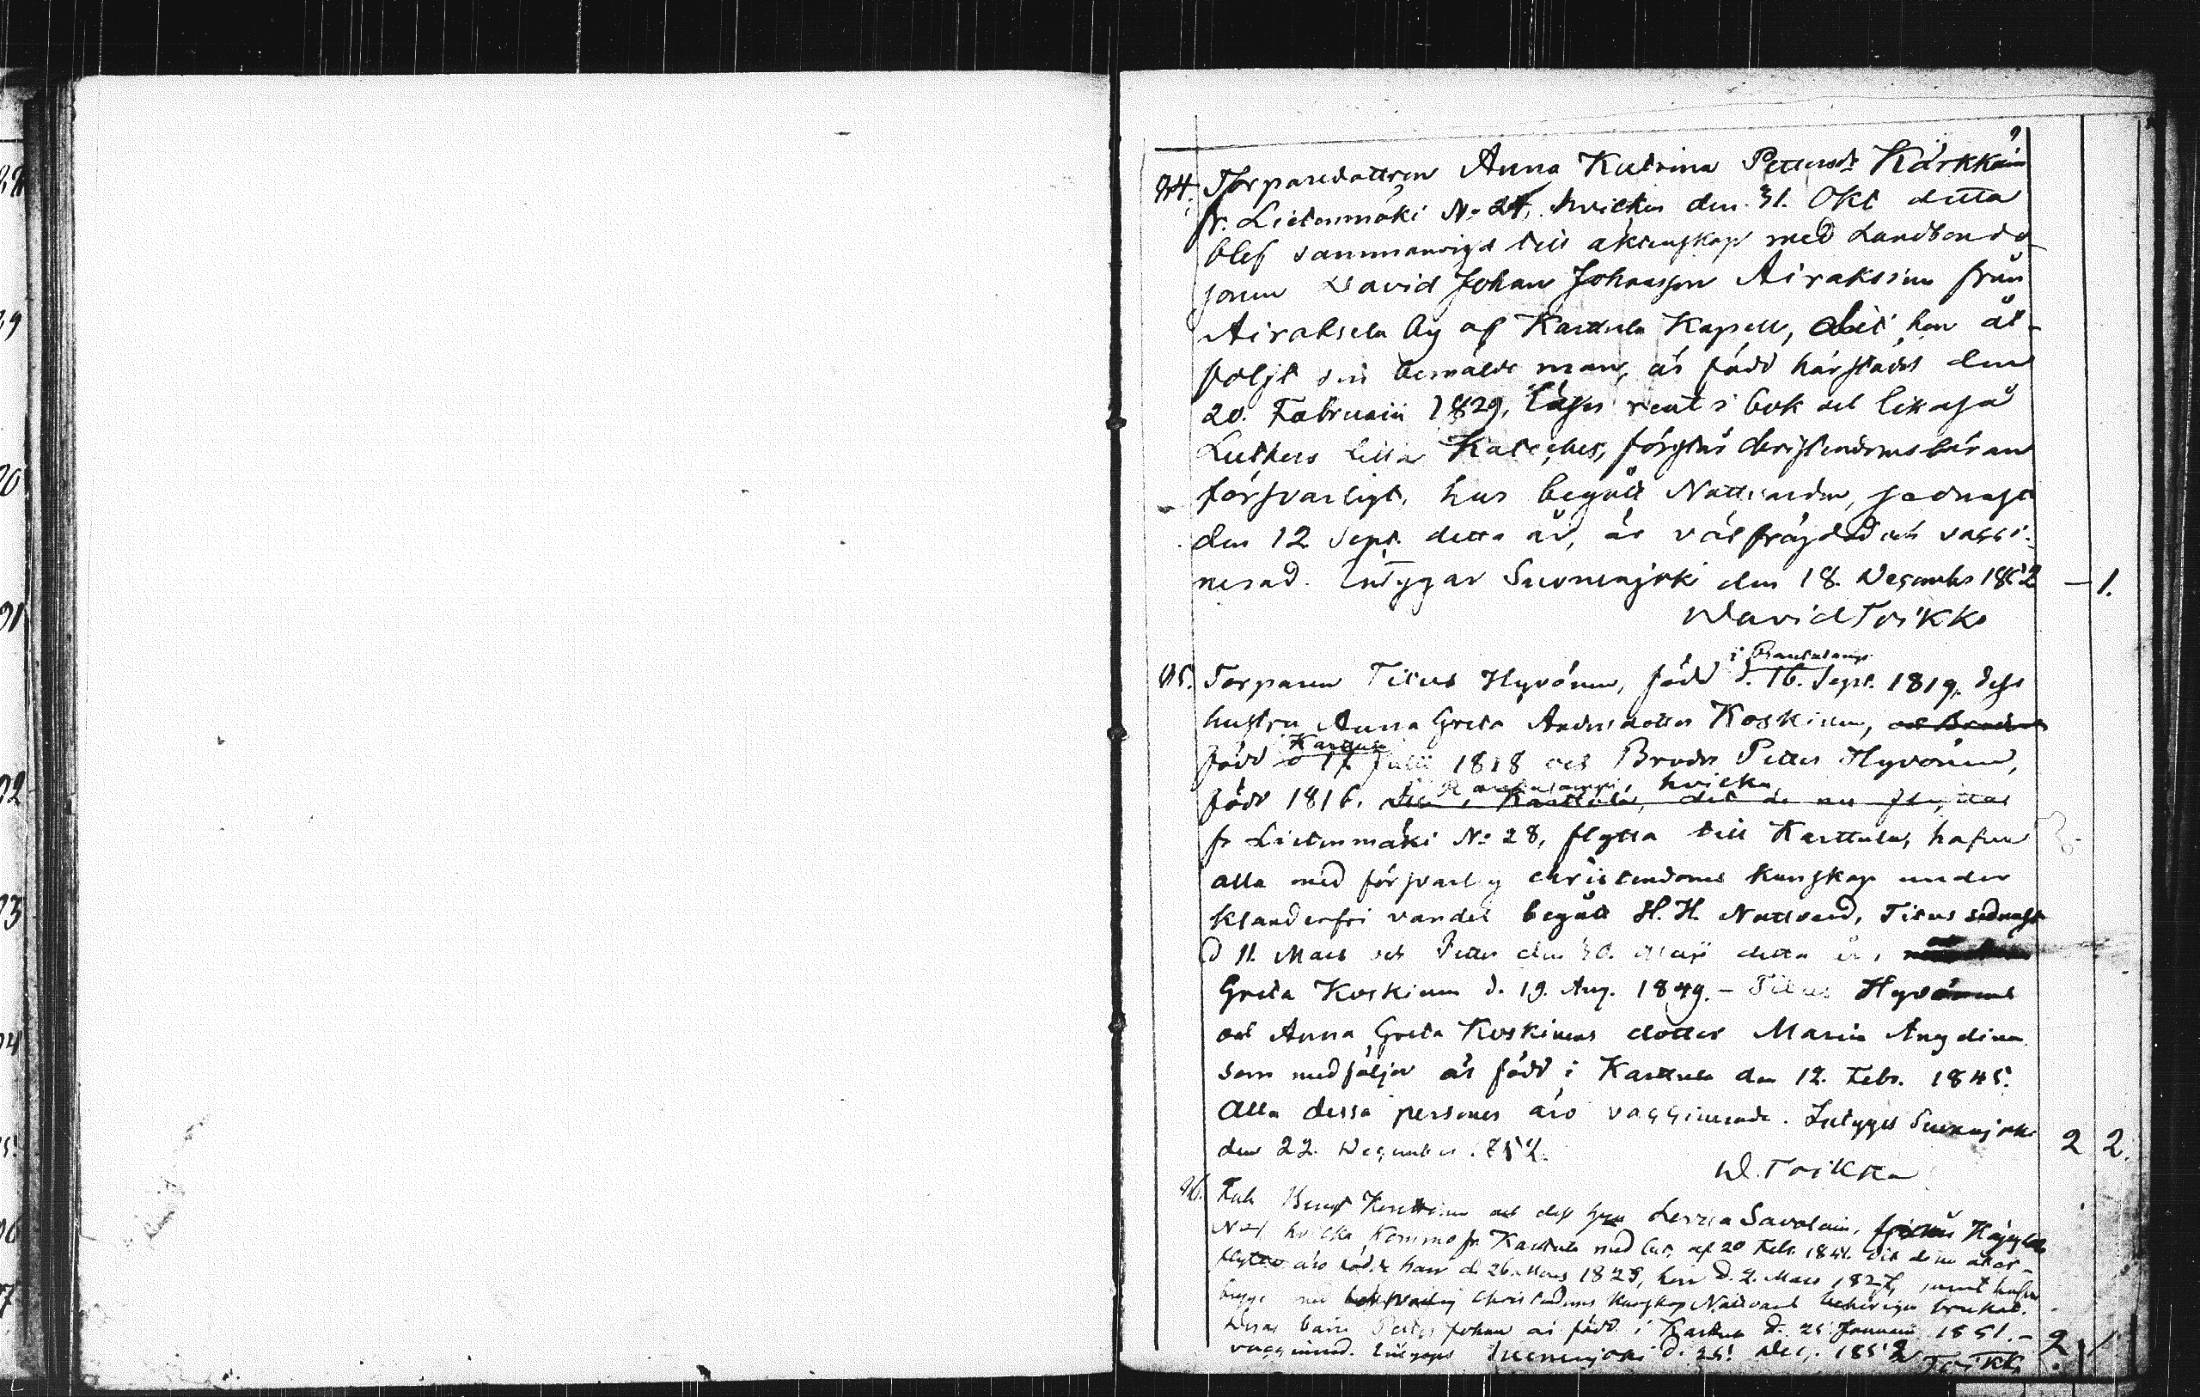 94. Torparedottren Anna Katrina Pettersdr Kärkkäin
fr. Lietenmäki No 24, hvilken den 31. Okt detta
blef sammanvigd till äktenskap med Landbonde-
sonen David Johan Johansson Airaksinen från
Airaksela by af Karttula Kapell, dit hon åt-
följt sin bemälde man, är född härstädes den
20. Februarii 1829, läser rent i bok och likaså
Luthers lilla Kateches, förstår christendomsläran
försvarligt, har begått Nattvarden, sednast
den 12 Sept. detta år, är välfräjdad och vacci-
nerad. Intygar Suonenjoki den 18. December 1852 — 1.
David Toikka
i Rautalampi
95. Torparen Titus Hyvönen, född d. 16. Sept. 1819, dess
hustru Anna Greta Andersdotter Koskinen, och Brodren
Karttula
född d 17 Julii 1818 och Broder Petter Hyvönen,
Rautalampi, hvilka
född 1816. i Karttula, dit de nu flyttar
fr Lietenmäki No 28, flytta till Karttula, hafva
alla med försvarlig christendoms kunskap under
klanderfri vandel begått H. H. Nattvard, Titus sednast
d 11. Mars och Petter den 30. Maji detta år,
Greta Koskinen d. 19. Aug. 1849. — Titus Hyvönens
och Anna Greta Koskinens dotter Maria
som medföljer är född i Karttula den 12. Febr. 1845.
Alla dessa personer äro vaccinerade. Intygas Suonenjoki
den 22. December 1852. 2 2.
D. Toikka
96. Bengt och dess hru Lovisa Savolain,
hvilka kommo fr Karttula med bet. af 20 Febr. dit de nu åter-
flytta äro födde han d. 26 Mars 1829, hon d. 2. Mars 1827, samt hafva
begge med försvarlig Christendoms kunskap Nattvard behörigen brukat.
Deras barn Petter Johan är född i Karttula d. 25 Januarii 1851. — 2 1
vaccinerad. Intygas Suonenjoki d. 25. Dec. 1852 Toikka